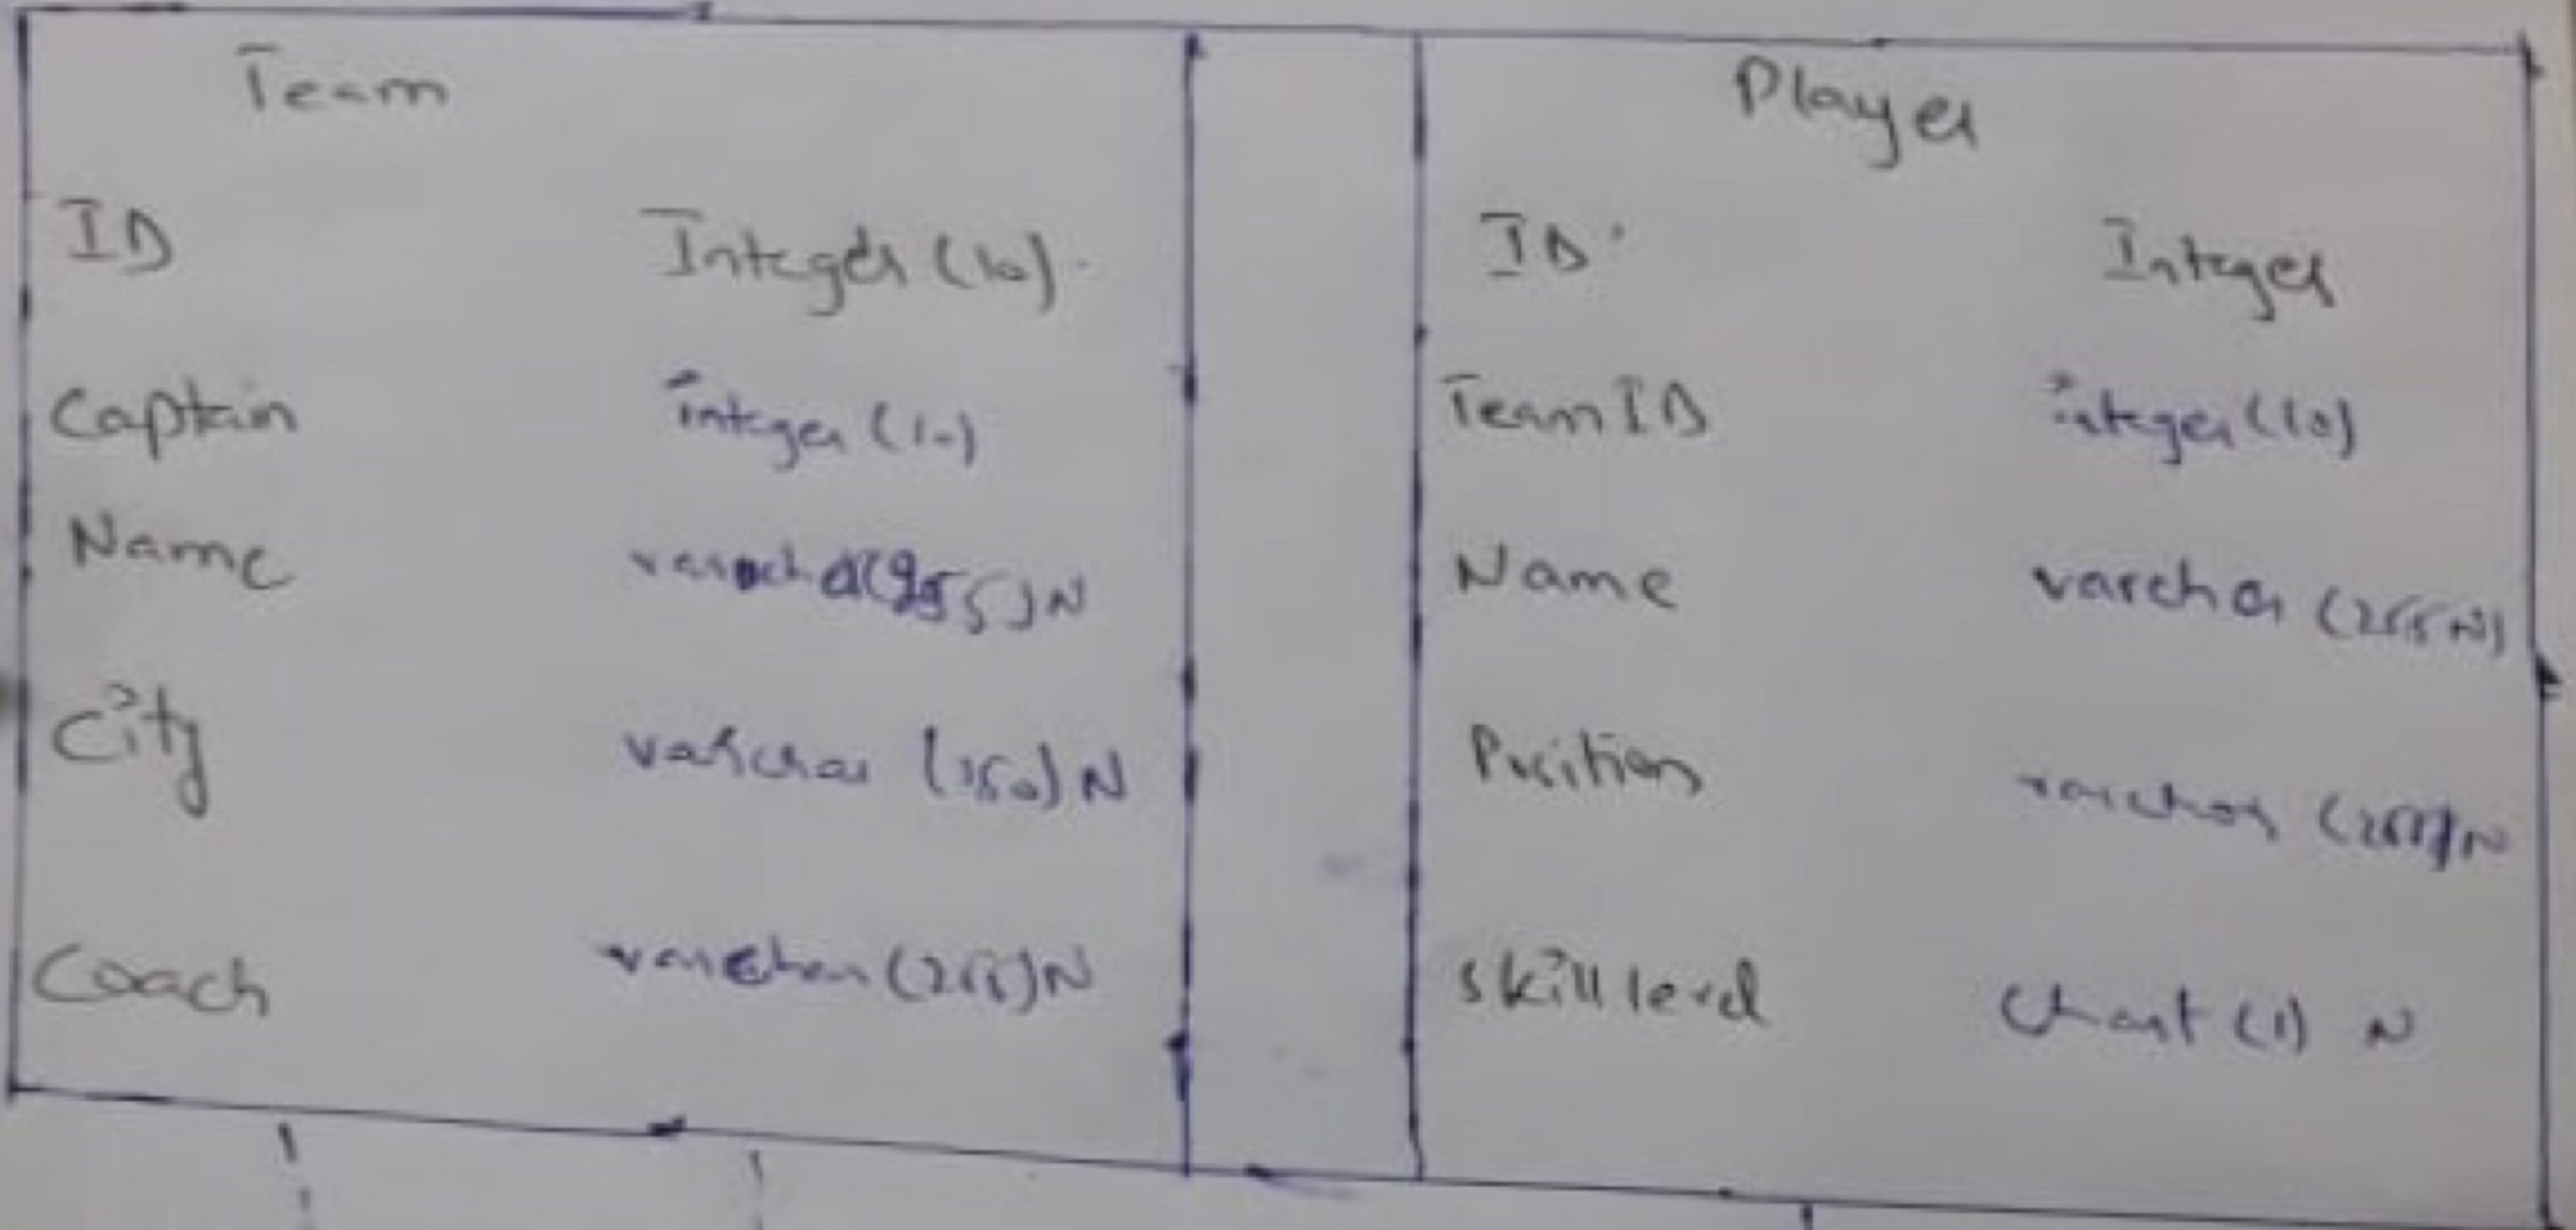 Team
ID Integer (10).
Captain integer (10)
Name varchar(255)N
City varchar (150) N
Coach varchar (255)N
Player
ID Integer
TeamID integer (10)
Name varchar (255 N)
Position varchar (255)N
skill level (1) N